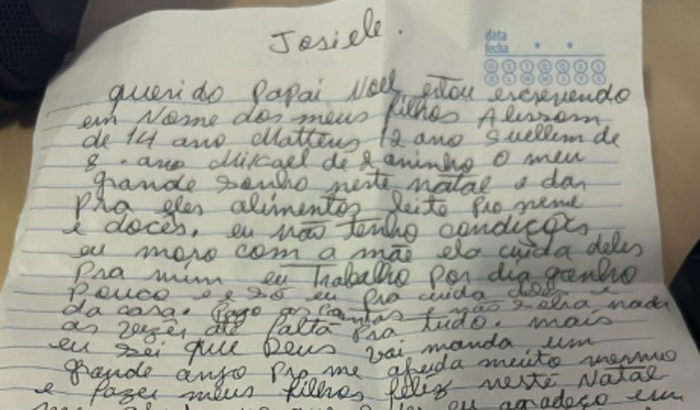 Josiele.
data
fecha
querido Papai Noel estou escrevendo
em Nome dos meus filhos Alissom
de 14 ano Matteus 12 ano Suellem de
8 . ano Mikael de 2 aninho O meu
grande sonho neste natal e dar
pra eles alimentos leite pro nene
e doces. eu não tenho condições
eu moro com a mãe ela cuida deles
pra mim eu trabalho por dia ganho
pouco e e só eu pra cuida deles e
da casa. Pago as contas e não sobra nada
as vezes até falta pra tudo. mais
eu sei que Deus vai manda um
grande anjo pra me ajuda muito mesmo
e fazer meus filhos feliz neste Natal
eu agradeço